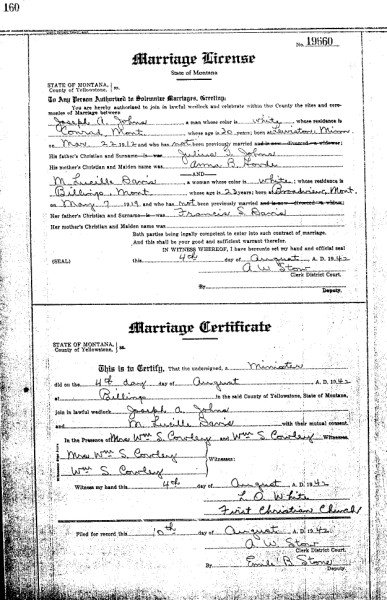 160
No. 19660
Marriage License
State of Montana
STATE OF MONTANA, } ss.
County of Yellowstone,
To Any Person Authorized to Solemnize Marriages, Greeting:
You are hereby authorized to join in lawful wedlock and celebrate within the County the rites and cere-
monies of Marriage between
Joseph A. Johns a man whose color is white, whose residence is
Conrad Mont. whose age is 30 years; born at Lewiston Minn.
on Mar 22 1912 and has not been previously married and is now divorced a widower;
His father's Christian and Surname is was Julius F. Johns
His mother's Christian and Maiden name was Anna B.
—AND—
M. Lucille Davis a woman whose color is white, whose residence is
Billings, Mont. whose age is 23 years; born at Broadview, Mont.
on May 7 1919 and has not been previously married and is now divorced a widow;
Her father's Christian and Surname is was Francis S. Davis
Her mother's Christian and Maiden name was
Both parties being legally competent to enter into such contract of marriage.
And this shall be your good and sufficient warrant therefor.
IN WITNESS WHEREOF, I have hereunto set my hand and official seal
(SEAL) this 4th day of August A. D. 1942
A W Stow
Clerk District Court.
By
Deputy.
Marriage Certificate
STATE OF MONTANA, } ss.
County of Yellowstone,
This is to Certify, That the undersigned, a Minister
did on the 4th day day of August A. D. 1942
at Billings in the said County of Yellowstone, State of Montana,
join in lawful wedlock Joseph A. Johns
and M. Lucille Davis with their mutual consent.
In the Presence of Mrs Wm S. Cowley and Wm S. Cowley Witnesses.
Mrs Wm S. Cowley
Witnesses:
Wm S. Cowley
Witness my hand this 4th day of August A. D. 1942
L. D. White
First Christian Church
Filed for record this 10th day of August A. D. 1942
A W Stow
Clerk District Court.
By Emile B Stone
Deputy.